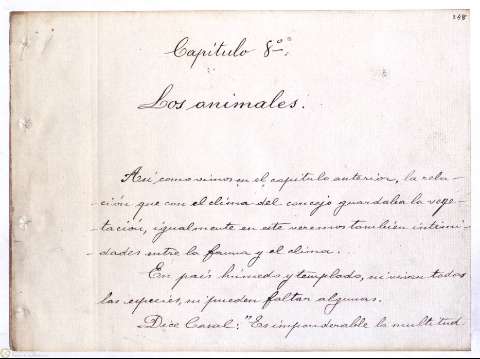 248
Capítulo 8º.
Los animales.
Así como vimos en el capítulo anterior, la rela-
-ción que con el clima del concejo guardaba la vege-
-tación, igualmente en este veremos también intimi-
-dades entre la fauna y el clima.
En país húmedo y templado, ni viven todas
las especies, ni pueden faltar algunas.
Dice Casal: "Es imponderable la multitud